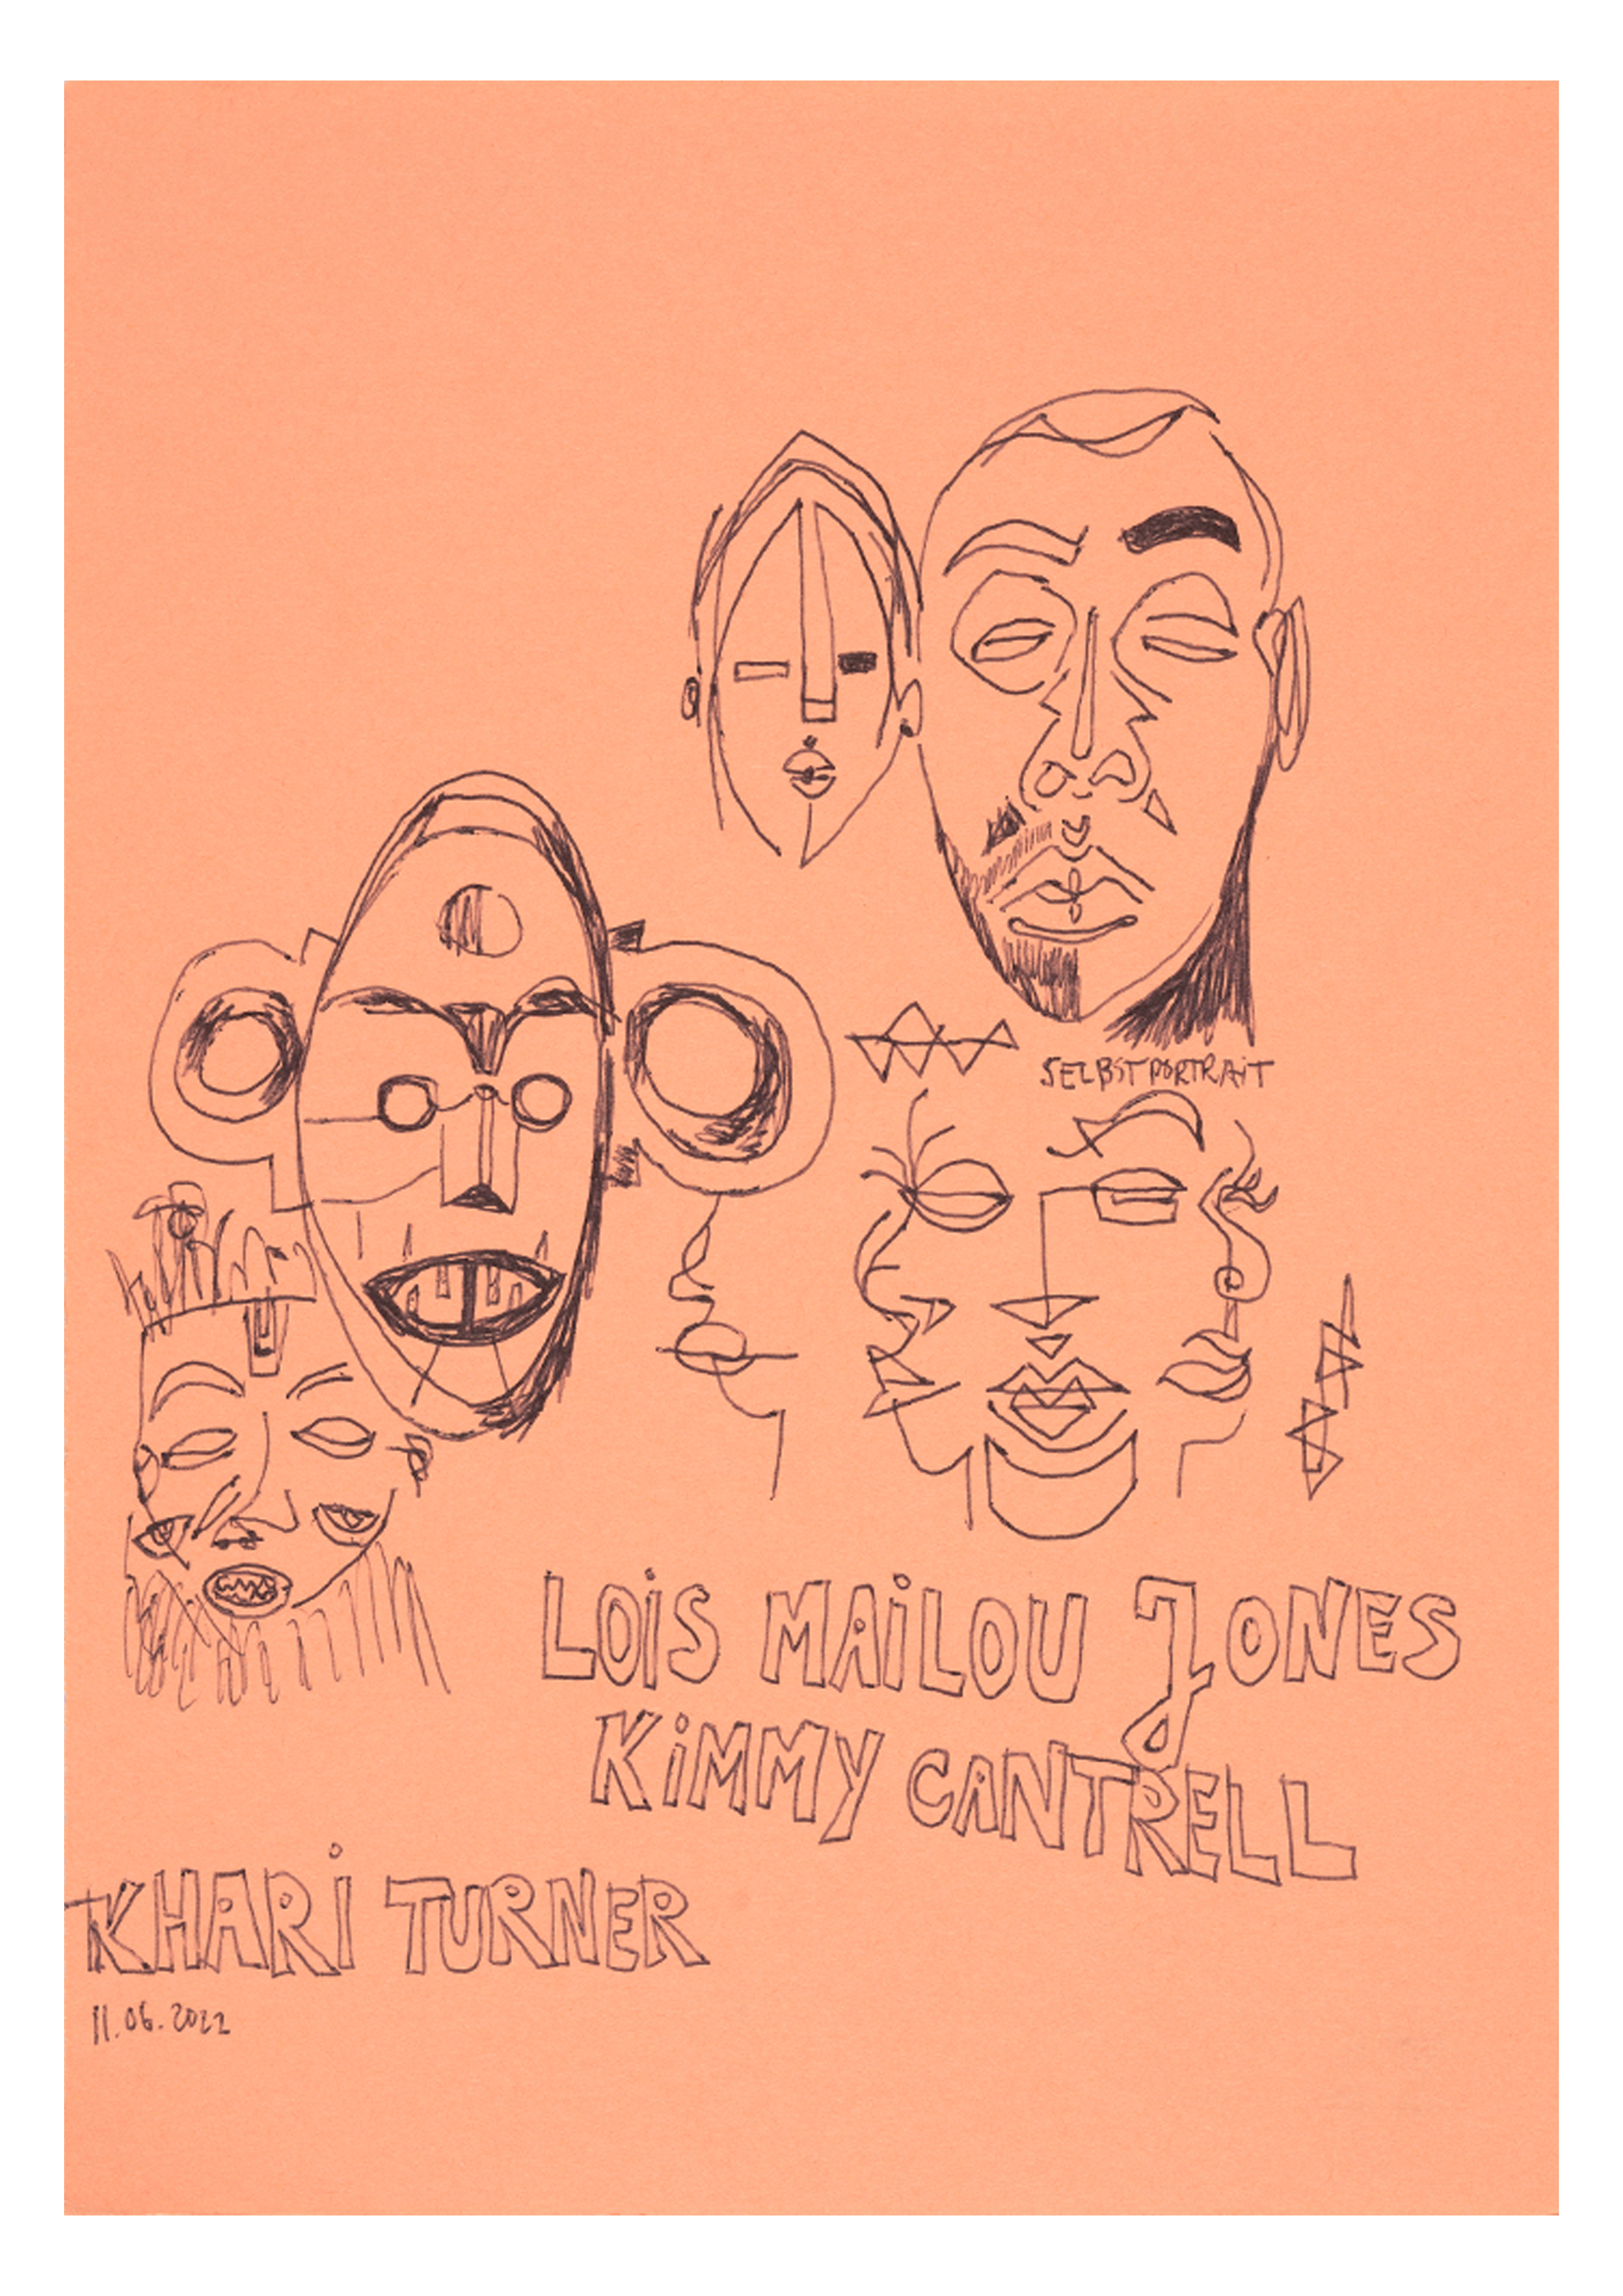 SELBSTPORTRAiT
LOiS MAiLOU JONES
KiMMY CANTRELL
KHARi TURNER
11.06.2022